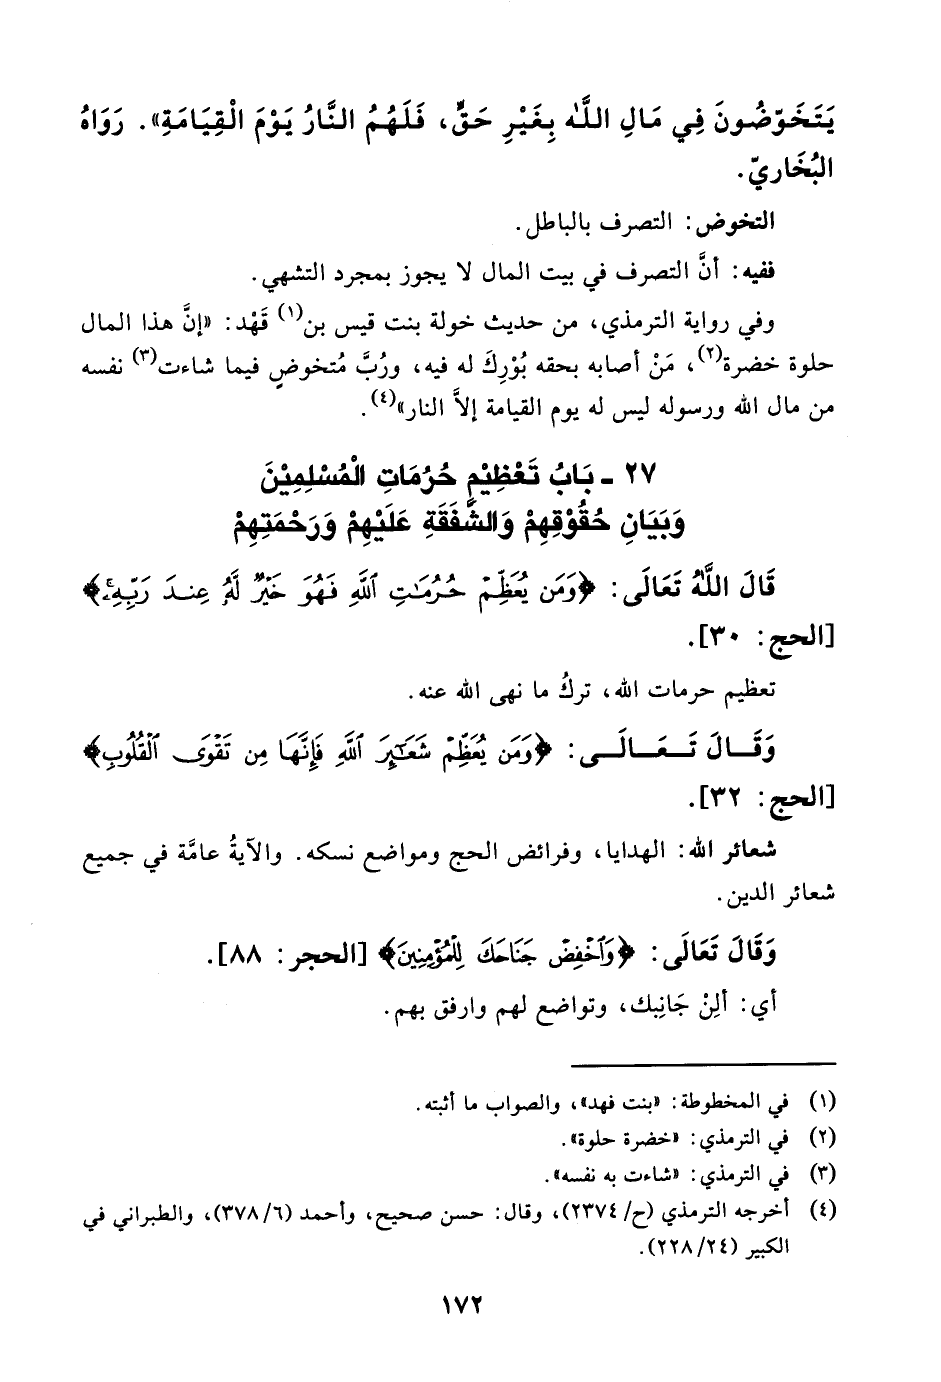 يَتَخَوَّضُونَ فِي مَالِ اللَّه بِغَيْرِ حَقٍّ، فَلَهُمُ النَّارُ يَوْمَ الْقِيَامَةِ». رَوَاهُ
البُخَاريّ.
التخوض: التصرف بالباطل.
ففيه: أنَّ التصرف في بيت المال لا يجوز بمجرد التشهي.
وفي رواية الترمذي، من حديث خولة بنت قيس بن(١) قَهْد: «إنَّ هذا المال
حلوة خضرة(٢)، مَنْ أصابه بحقه بُوْرِكَ له فيه، ورُبَّ مُتخوضٍ فيما شاءت(٣) نفسه
من مال الله ورسوله ليس له يوم القيامة إلاَّ النار»(٤).
٢٧ - بَابُ تَعْظِيْمِ حُرُمَاتِ الْمُسْلِمِيْنَ
وَبَيَانِ حُقُوْقِهِمْ وَالشَّفَقَةِ عَلَيْهِمْ وَرَحْمَتِهِمْ
قَالَ اللَّهُ تَعَالَى: ﴿وَمَن يُعَظِّمْ حُرُمَٰتِ ٱللَّهِ فَهُوَ خَيْرٌ لَّهُۥ عِندَ رَبِّهِۦ﴾
[الحج: ٣٠].
تعظيم حرمات الله، تركُ ما نهى الله عنه.
وَقَالَ تَعَالَى: ﴿وَمَن يُعَظِّمْ شَعَٰٓئِرَ ٱللَّهِ فَإِنَّهَا مِن تَقْوَى ٱلْقُلُوبِ﴾
[الحج: ٣٢].
شعائر الله: الهدايا، وفرائض الحج ومواضع نسكه. والآيةُ عامَّة في جميع
شعائر الدين.
وَقَالَ تَعَالَى: ﴿وَٱخْفِضْ جَنَاحَكَ لِلْمُؤْمِنِينَ﴾ [الحجر: ٨٨].
أي: ألِنْ جَانِبك، وتواضع لهم وارفق بهم.
(١) في المخطوطة: «بنت فهد»، والصواب ما أثبته.
(٢) في الترمذي: «خضرة حلوة».
(٣) في الترمذي: «شاءت به نفسه».
(٤) أخرجه الترمذي (ح/٢٣٧٤)، وقال: حسن صحيح، وأحمد (٦/٣٧٨)، والطبراني في
الكبير (٢٤/٢٢٨).
١٧٢